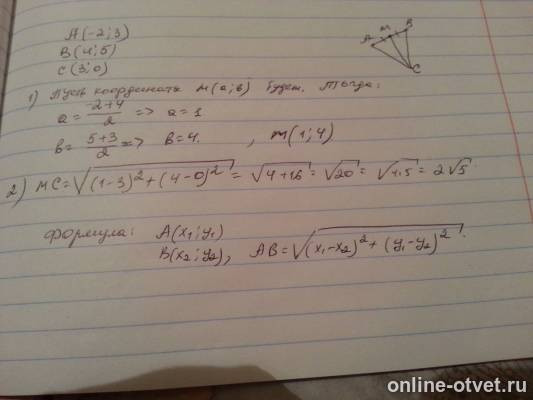 A(-2;3)
B(4;5)
C(3;0)
A M B C
1) Пусть координата M(a;b) будет. Тогда:
a = (-2+4)/2 => a = 1
b = (5+3)/2 => b = 4. , m(1;4)
2) MC = √((1-3)²+(4-0)²) = √(4+16) = √20 = √(4.5) = 2√5
Формула: A(x₁;y₁)
B(x₂;y₂), AB = √((x₁-x₂)²+(y₁-y₂)²).
online-otvet.ru